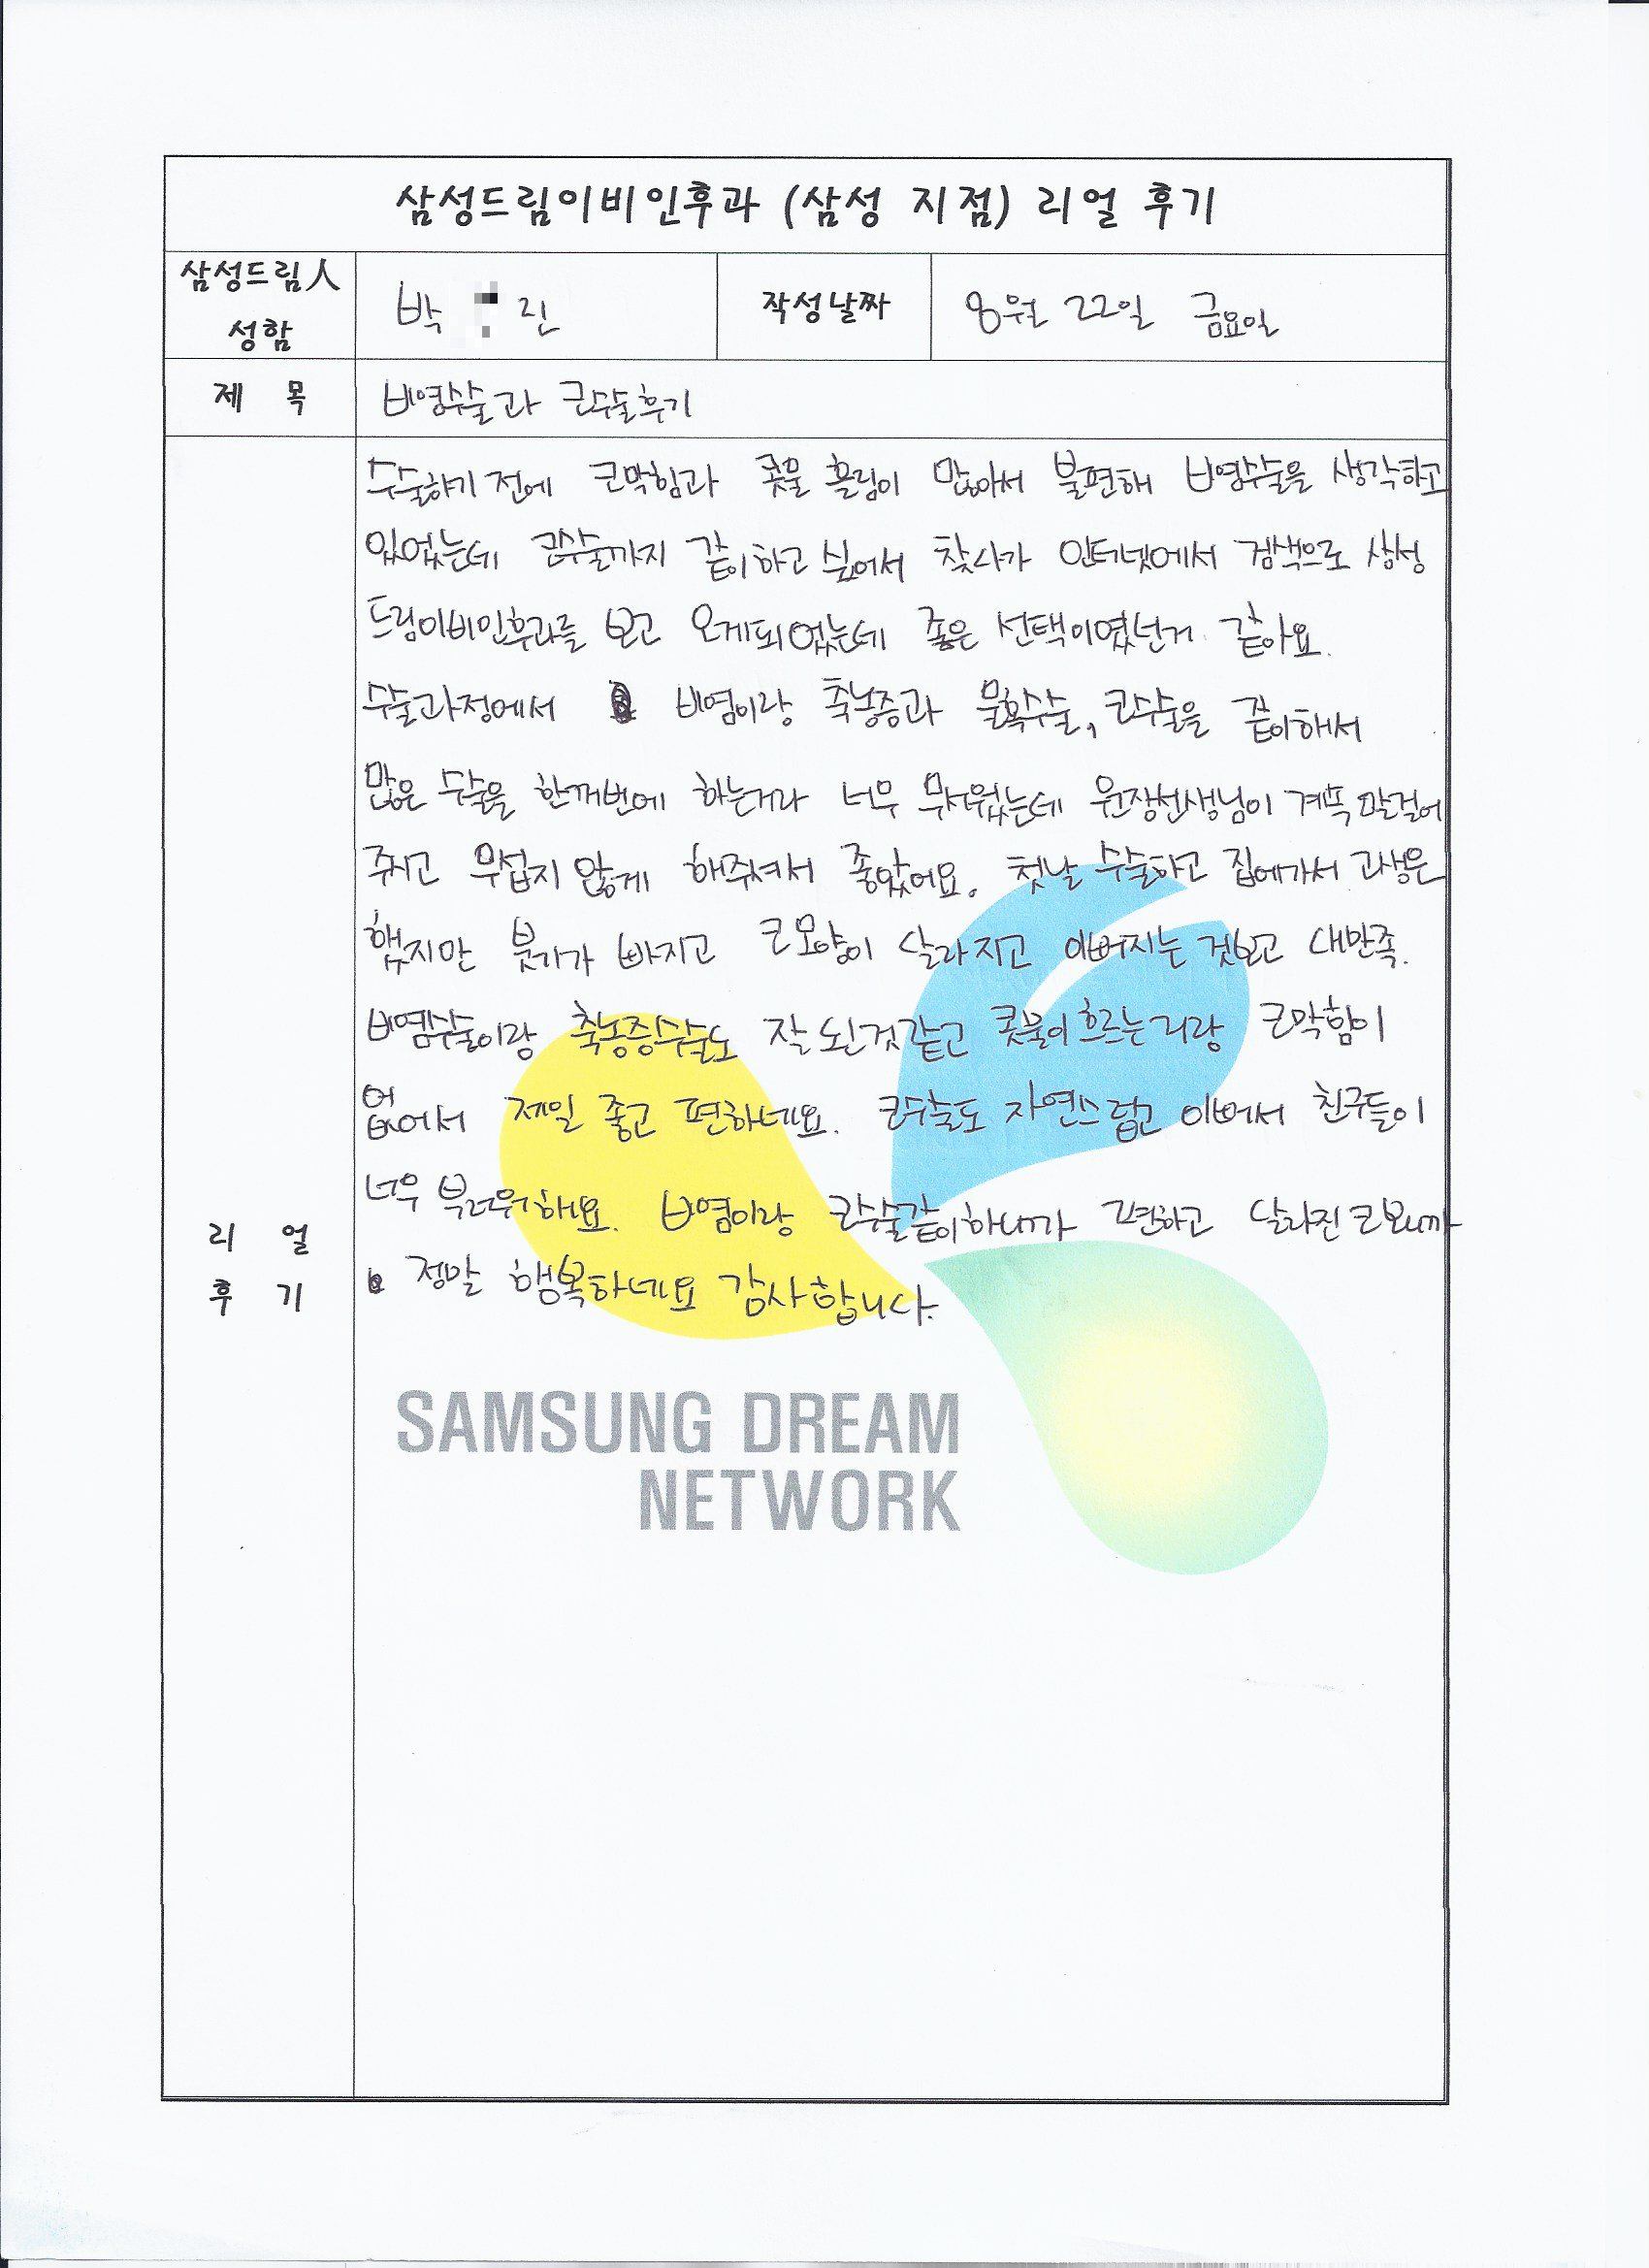 삼성드림이비인후과 (삼성 지점) 리얼 후기
삼성드림人
성함
박 진
작성날짜
8월 22일 금요일
제 목
비염수술과 코수술후기
수술하기 전에 코막힘과 콧물 흘림이 많아서 불편해 비염수술을 생각하고
있었는데 코수술까지 같이하고 싶어서 찾다가 인터넷에서 검색으로 삼성
드림이비인후과를 보고 오게되었는데 좋은 선택이였던거 같아요.
수술과정에서 비염이랑 축농증과 물혹수술, 코수술을 같이해서
많은 수술을 한꺼번에 하는거라 너무 무서웠는데 원장선생님이 계속 말걸어
주시고 무섭지 않게 해주셔서 좋았어요. 첫날 수술하고 집에가서 고생은
했지만 붓기가 빠지고 코모양이 달라지고 이뻐지는 것보고 대만족.
비염수술이랑 축농증수술도 잘 된것같고 콧물이 흐르는거랑 코막힘이
없어서 제일 좋고 편하네요. 코수술도 자연스럽고 이뻐서 친구들이
너무 부러워해요. 비염이랑 코수술같이하니까 편하고 달라진 코보니까
정말 행복하네요 감사합니다.
리 얼
후 기
SAMSUNG DREAM
NETWORK